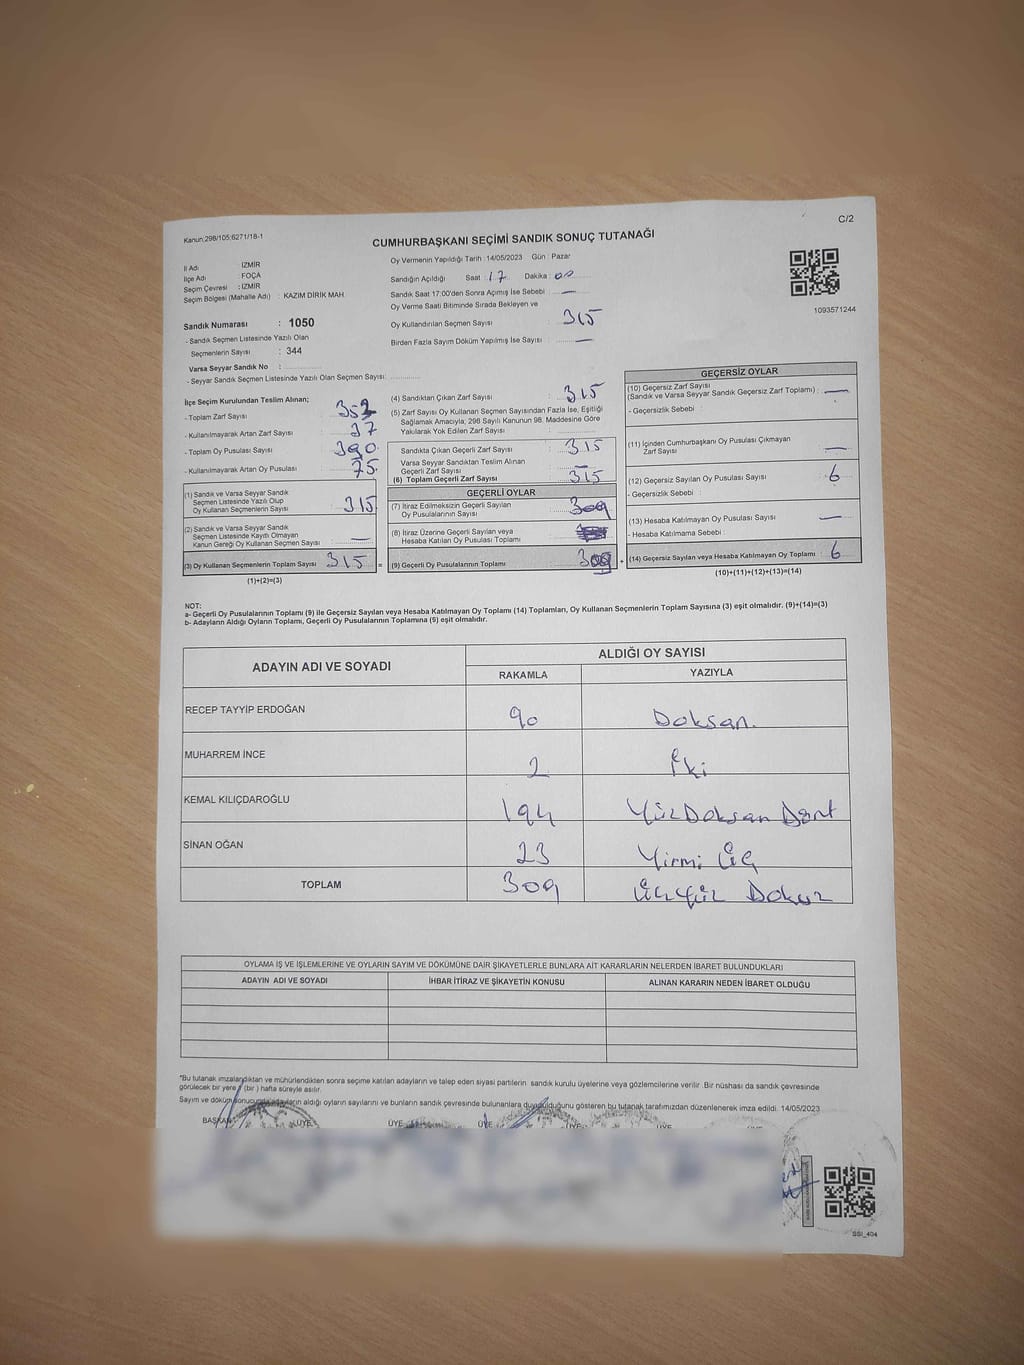 Kanun:298/105:6271/18-1
C/2
CUMHURBAŞKANI SEÇİMİ SANDIK SONUÇ TUTANAĞI
İl Adı : İZMİR
İlçe Adı : FOÇA
Seçim Çevresi : İZMİR
Seçim Bölgesi (Mahalle Adı) : KAZIM DİRİK MAH.
Sandık Numarası : 1050
- Sandık Seçmen Listesinde Yazılı Olan
Seçmenlerin Sayısı : 344
Varsa Seyyar Sandık No :
- Seyyar Sandık Seçmen Listesinde Yazılı Olan Seçmen Sayısı:
Oy Vermenin Yapıldığı Tarih : 14/05/2023 Gün : Pazar
Sandığın Açıldığı Saat : 17 Dakika : 00
Sandık Saat 17:00'den Sonra Açımış İse Sebebi : —
Oy Verme Saati Bitiminde Sırada Bekleyen ve
Oy Kullandırılan Seçmen Sayısı : 315
Birden Fazla Sayım Döküm Yapılmış İse Sayısı : —
1093571244
İlçe Seçim Kurulundan Teslim Alınan;
- Toplam Zarf Sayısı : 352
- Kullanılmayarak Artan Zarf Sayısı : 37
- Toplam Oy Pusulası Sayısı : 390
- Kullanılmayarak Artan Oy Pusulası : 75
(1) Sandık ve Varsa Seyyar Sandık
Seçmen Listesinde Yazılı Olup
Oy Kullanan Seçmenlerin Sayısı : 315
(2) Sandık ve Varsa Seyyar Sandık
Seçmen Listesinde Kayıtlı Olmayan
Kanun Gereği Oy Kullanan Seçmen Sayısı : —
(3) Oy Kullanan Seçmenlerin Toplam Sayısı : 315
(1)+(2)=(3)
(4) Sandıktan Çıkan Zarf Sayısı : 315
(5) Zarf Sayısı Oy Kullanan Seçmen Sayısından Fazla İse, Eşitliği
Sağlamak Amacıyla, 298 Sayılı Kanunun 98. Maddesine Göre
Yakılarak Yok Edilen Zarf Sayısı :
Sandıkta Çıkan Geçerli Zarf Sayısı : 315
Varsa Seyyar Sandıktan Teslim Alınan
Geçerli Zarf Sayısı : —
(6) Toplam Geçerli Zarf Sayısı : 315
GEÇERLİ OYLAR
(7) İtiraz Edilmeksizin Geçerli Sayılan
Oy Pusulalarının Sayısı : 309
(8) İtiraz Üzerine Geçerli Sayılan veya
Hesaba Katılan Oy Pusulası Toplamı :
(9) Geçerli Oy Pusulalarının Toplamı : 309
GEÇERSİZ OYLAR
(10) Geçersiz Zarf Sayısı
(Sandık ve Varsa Seyyar Sandık Geçersiz Zarf Toplamı) : —
- Geçersizlik Sebebi :
(11) İçinden Cumhurbaşkanı Oy Pusulası Çıkmayan
Zarf Sayısı : —
(12) Geçersiz Sayılan Oy Pusulası Sayısı : 6
- Geçersizlik Sebebi :
(13) Hesaba Katılmayan Oy Pusulası Sayısı : —
- Hesaba Katılmama Sebebi :
(14) Geçersiz Sayılan veya Hesaba Katılmayan Oy Toplamı : 6
(10)+(11)+(12)+(13)=(14)
NOT:
a- Geçerli Oy Pusulalarının Toplamı (9) ile Geçersiz Sayılan veya Hesaba Katılmayan Oy Toplamı (14) Toplamları, Oy Kullanan Seçmenlerin Toplam Sayısına (3) eşit olmalıdır. (9)+(14)=(3)
b- Adayların Aldığı Oyların Toplamı, Geçerli Oy Pusulalarının Toplamına (9) eşit olmalıdır.
ADAYIN ADI VE SOYADI ALDIĞI OY SAYISI
RAKAMLA YAZIYLA
RECEP TAYYİP ERDOĞAN 90 Doksan.
MUHARREM İNCE 2 İki
KEMAL KILIÇDAROĞLU 194 YüzDoksan Dört
SİNAN OĞAN 23 Yirmi Üç
TOPLAM 309 ÜçYüz Dokuz
OYLAMA İŞ VE İŞLEMLERİNE VE OYLARIN SAYIM VE DÖKÜMÜNE DAİR ŞİKAYETLERLE BUNLARA AİT KARARLARIN NELERDEN İBARET BULUNDUKLARI
ADAYIN ADI VE SOYADI İHBAR İTİRAZ VE ŞİKAYETİN KONUSU ALINAN KARARIN NEDEN İBARET OLDUĞU
"Bu tutanak imzalandıktan ve mühürlendikten sonra seçime katılan adayların ve talep eden siyasi partilerin sandık kurulu üyelerine veya gözlemcilerine verilir. Bir nüshası da sandık çevresinde
görülecek bir yere 1 (bir ) hafta süreyle asılır.
Sayım ve döküm sonucunda adayların aldığı oyların sayılarını ve bunların sandık çevresinde bulunanlara duyurulduğunu gösteren bu tutanak tarafımızdan düzenlenerek imza edildi. 14/05/2023
BAŞKAN ÜYE ÜYE ÜYE ÜYE ÜYE ÜYE
SSI_404